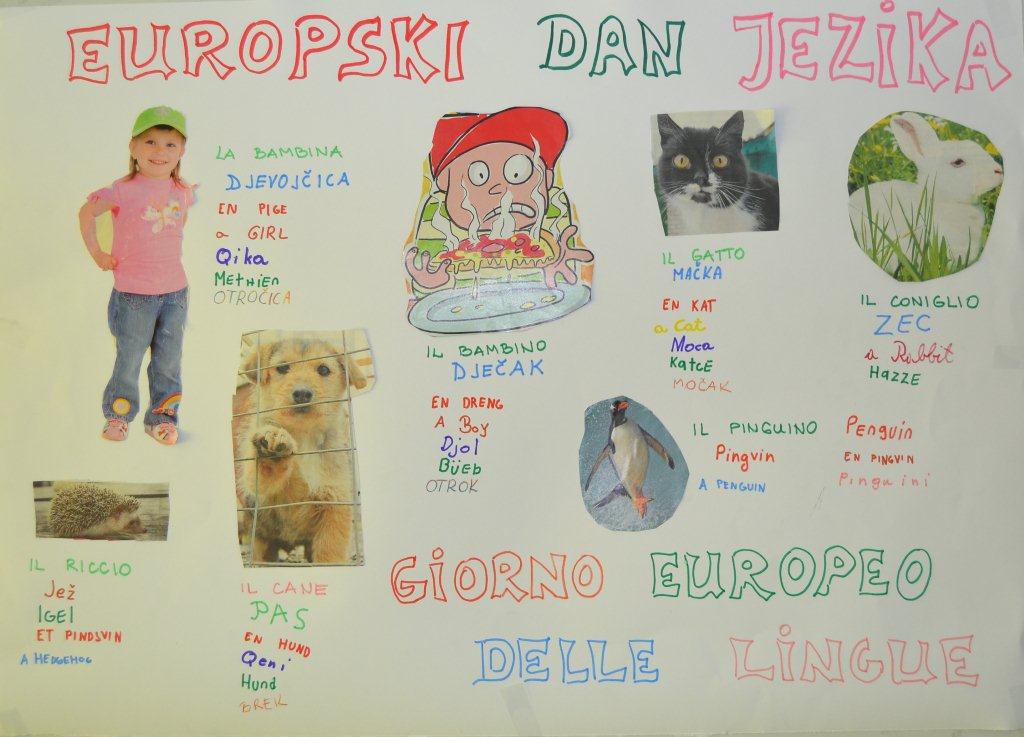 EUROPSKI DAN JEZIKA
LA BAMBINA
DJEVOJČICA
EN PIGE
a GIRL
Qika
Methien
OTROČICA
IL BAMBINO
DJEČAK
EN DRENG
A BOY
Djol
Büeb
OTROK
IL GATTO
MAČKA
EN KAT
a Cat
Moca
Katce
MOČAK
IL CONIGLIO
ZEC
a Rabbit
HAZZE
IL PINGUINO
Pingvin
A PENGUIN
Penguin
EN PINGVIN
Pinguini
IL RICCIO
Jež
IGEl
ET PINDSVIN
A HEDGEHOG
IL CANE
PAS
EN HUND
Qeni
Hund
BREK
GIORNO EUROPEO
DELLE LINGUE